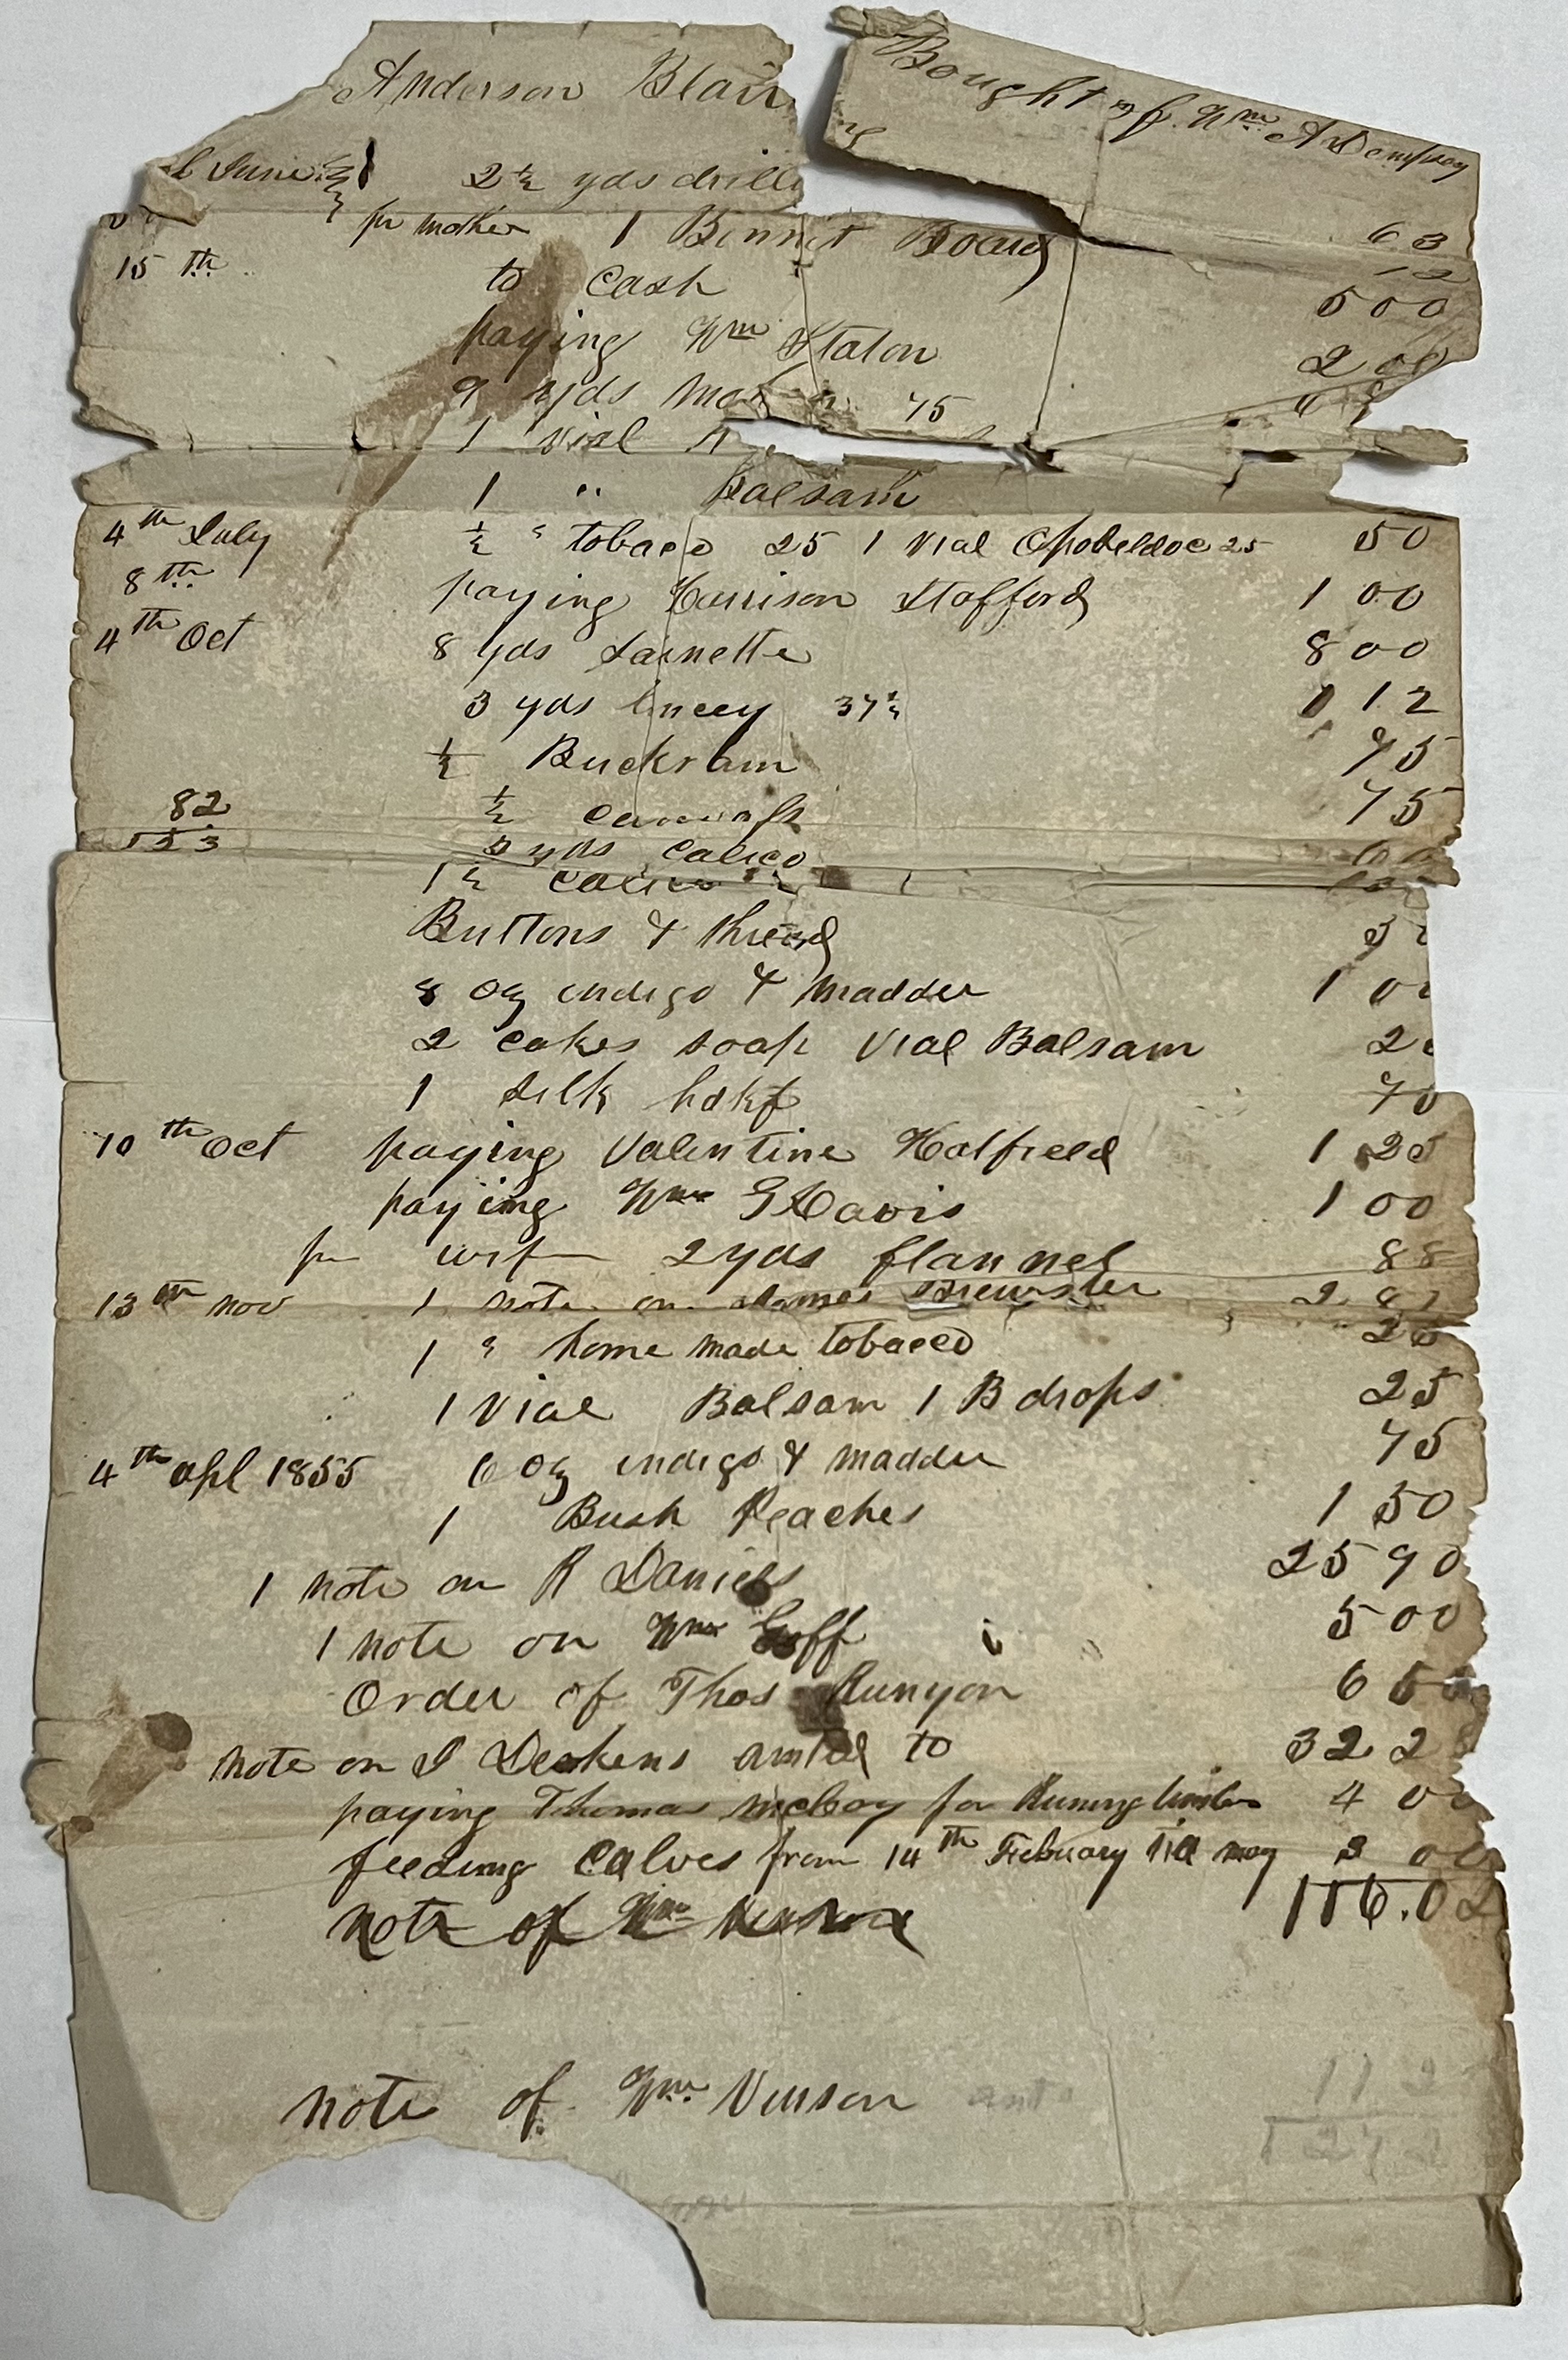 Anderson Blair Bought of Wm A Dempsey
June 2½ yds drilling 63
pr mother 1 Binnit Board 12
15th to cash 5 00
paying Wm Staton 2 00
9 yds 75
1 vial
1 " balsam
4th July ½ " tobaco 25 1 vial Opobeldoc 25 50
8th paying Harrison Stafford 1 00
4th Oct 8 yds Sainette 8 00
3 yds lincey 37½ 1 12
½ Buckram 75
82 ½ canvass 75
153 yds Calico
1½ calico
Buttons & thread
8 oz indigo & madder 1 0
2 cakes soap Vial Balsam 2
1 Silk hdkf 70
10th Oct paying Valentine Hatfield 1 25
paying Wm G Davis 1 00
pr wife 2 yds flannel 88
13th nov 1 note on James Brewster 2 87
1 " home made tobacco 25
1 Vial Balsam 1 B drops 25
4th apl 1855 6 oz indigo & madder 75
1 Bush Peaches 1 50
1 note on R Daniels 25 90
1 note on Wm Goff 5 00
Order of Thos Runyon 6 5
Note on I Deskens amtd to 32 2
paying Thomas mcCoy for Runing timber 4 00
feeding Calves from 14th February till may 3 00
note of Wm 116.02
note of Wm Vinson amt 112
1272